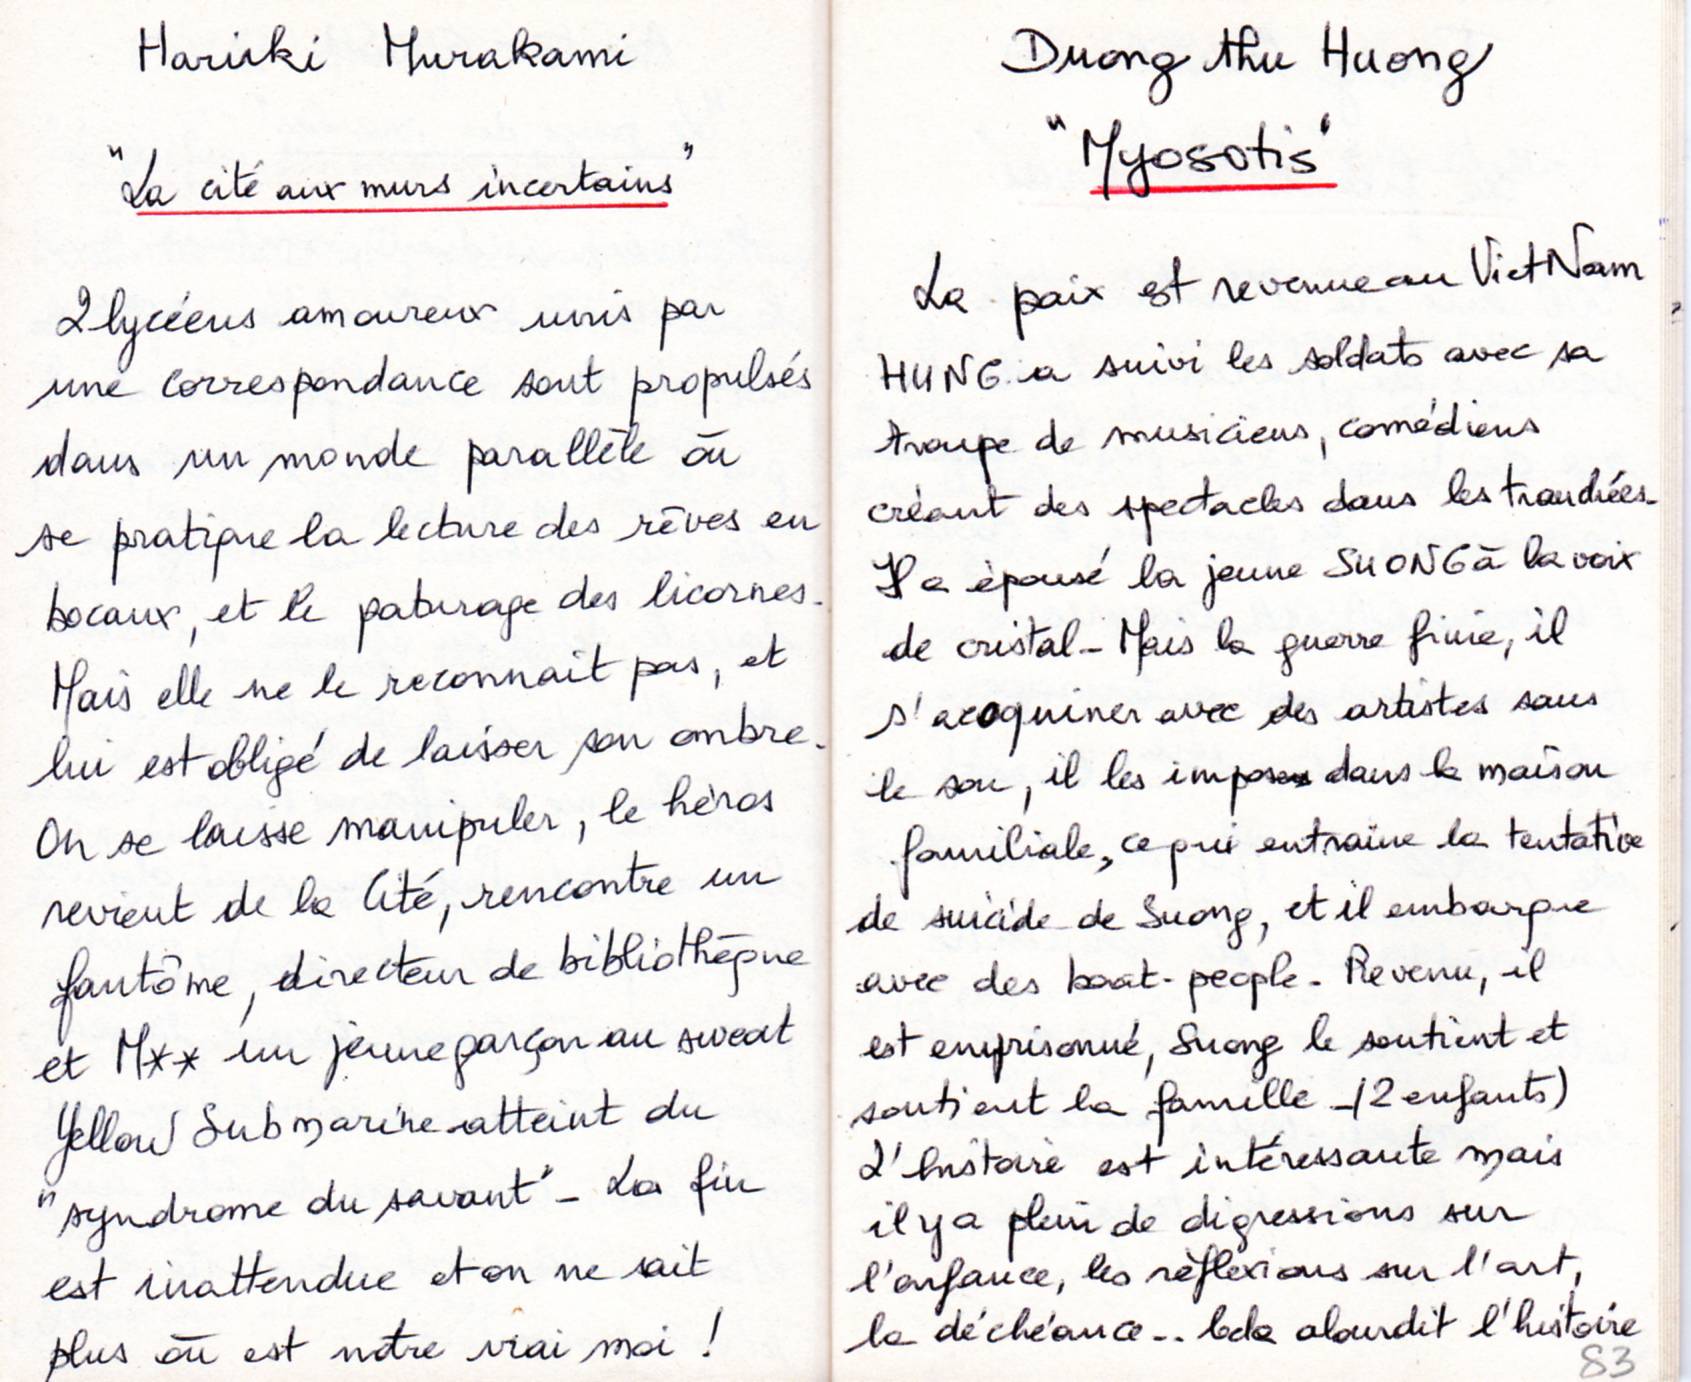 Haruki Murakami
"La cité aux murs incertains"
2 lycéens amoureux unis par
une correspondance sont propulsés
dans un monde parallèle où
se pratique la lecture des rêves en
bocaux, et le paturage des licornes.
Mais elle ne le reconnait pas, et
lui est obligé de laisser son ombre.
On se laisse manipuler, le héros
revient de la Cité, rencontre un
fantôme, directeur de bibliothèque
et M** un jeune garçon au sweat
Yellow Submarine atteint du
"syndrome du savant" - La fin
est inattendue et on ne sait
plus où est notre vrai moi !
Duong thu Huong
"Myosotis"
La paix est revenue au VietNam
HUNG a suivi les soldats avec sa
troupe de musiciens, comédiens
créant des spectacles dans les tranchées.
Il a épousé la jeune SUONG à la voix
de cristal - Mais la guerre finie, il
s'acoquiner avec des artistes sans
le sou, il les impose dans la maison
familiale, ce qui entraine la tentative
de suicide de Suong, et il embarque
avec des boat-people. Revenu, il
est emprisonné, Suong le soutient et
soutient la famille - (2 enfants)
L'histoire est intéressante mais
il y a plein de digressions sur
l'enfance, les réflexions sur l'art,
la déchéance... Cela alourdit l'histoire
83